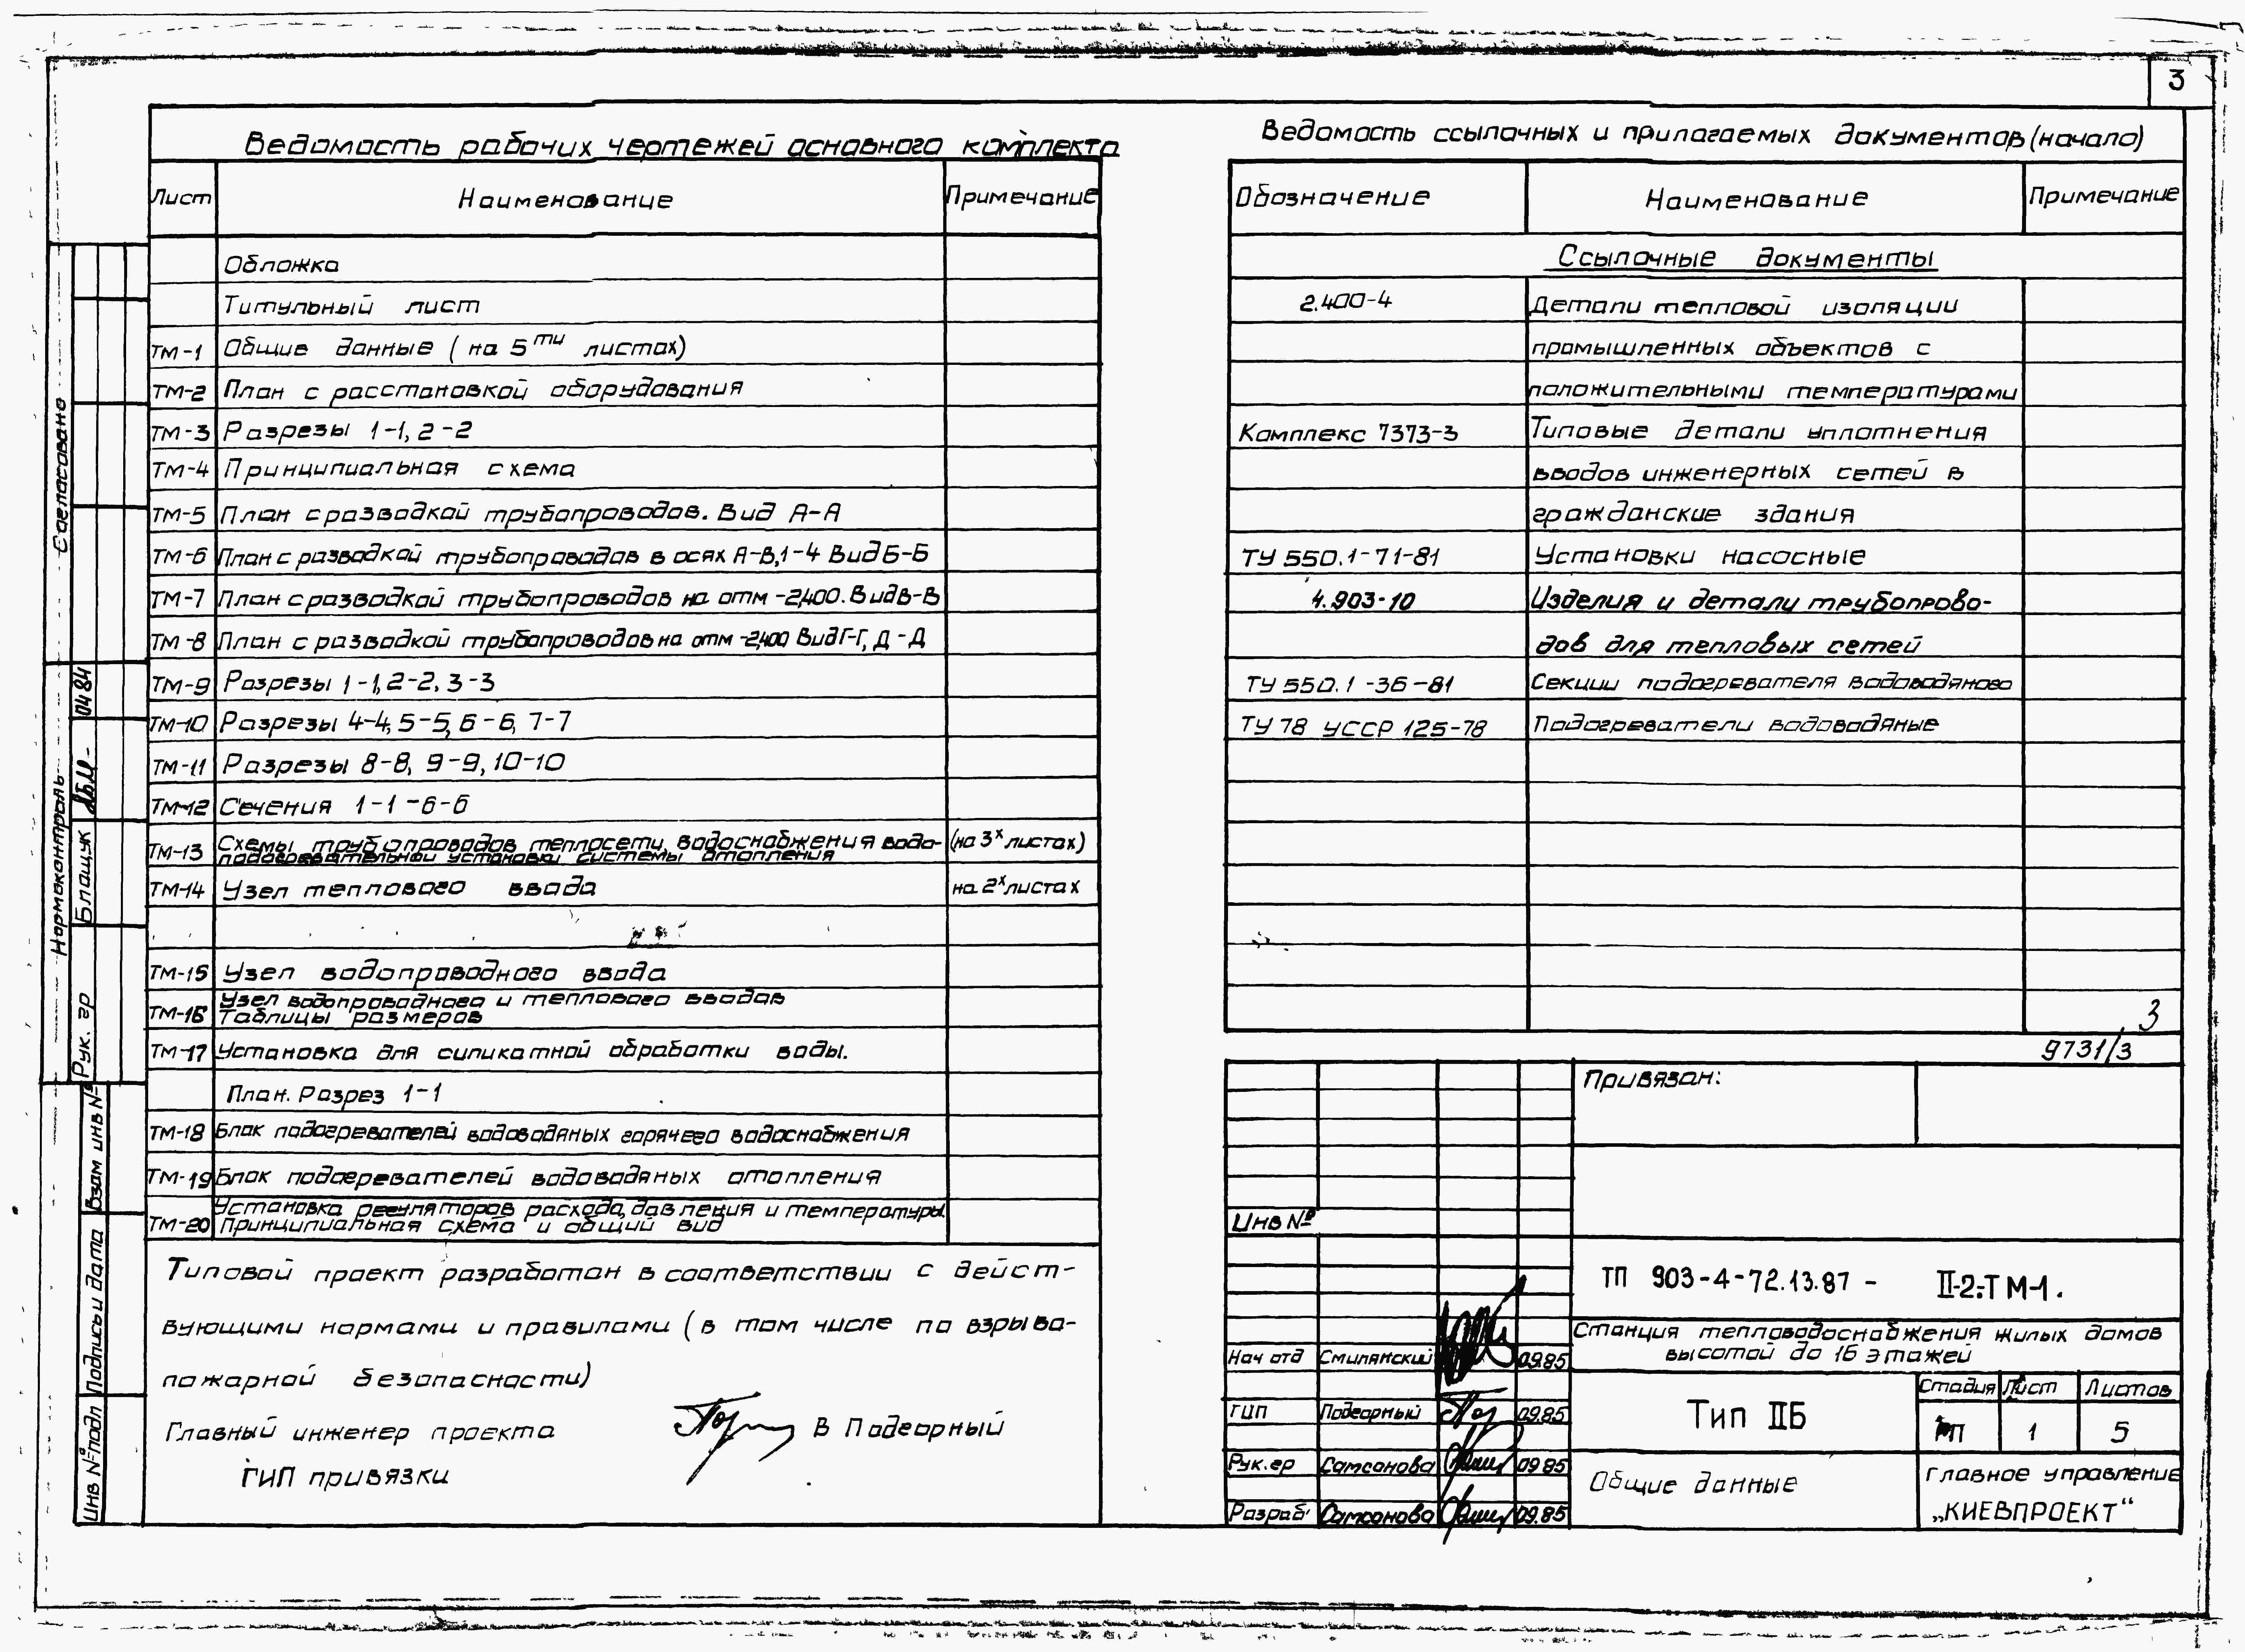 3
Ведомость рабочих чертежей основного комплекта
Лист Наименование Примечание
Обложка
Титульный лист
ТМ-1 Общие данные (на 5ти листах)
ТМ-2 План с расстановкой оборудования
ТМ-3 Разрезы 1-1, 2-2
ТМ-4 Принципиальная схема
ТМ-5 План с разводкой трубопроводов. Вид А-А
ТМ-6 План с разводкой трубопроводов в осях А-В, 1-4 Вид Б-Б
ТМ-7 План с разводкой трубопроводов на отм -2,400. Вид В-В
ТМ-8 План с разводкой трубопроводов на отм -2,400 Вид Г-Г, Д-Д
ТМ-9 Разрезы 1-1, 2-2, 3-3
ТМ-10 Разрезы 4-4, 5-5, 6-6, 7-7
ТМ-11 Разрезы 8-8, 9-9, 10-10
ТМ-12 Сечения 1-1 - 6-6
ТМ-13 Схемы трубопроводов теплосети, водоснабжения водо- (на 3х листах)
подогревательной установки системы отопления
ТМ-14 Узел теплового ввода на 2х листах
ТМ-15 Узел водопроводного ввода
ТМ-16 Узел водопроводного и теплового вводов
Таблицы размеров
ТМ-17 Установка для силикатной обработки воды.
План. Разрез 1-1
ТМ-18 Блок подогревателей водоводяных горячего водоснабжения
ТМ-19 Блок подогревателей водоводяных отопления
ТМ-20 Установка регуляторов расхода, давления и температуры.
Принципиальная схема и общий вид
Типовой проект разработан в соответствии с дейст-
вующими нормами и правилами (в том числе по взрыво-
пожарной безопасности)
Главный инженер проекта В Подгорный
ГИП привязки
Ведомость ссылочных и прилагаемых документов (начало)
Обозначение Наименование Примечание
Ссылочные документы
2.400-4 Детали тепловой изоляции
промышленных объектов с
положительными температурами
Комплекс 7373-3 Типовые детали уплотнения
вводов инженерных сетей в
гражданские здания
ТУ 550.1-71-81 Установки насосные
4.903-10 Изделия и детали трубопрово-
дов для тепловых сетей
ТУ 550.1-36-81 Секции подогревателя водоводяного
ТУ 78 УССР 125-78 Подогреватели водоводяные
3
9731/3
Привязан:
Инв №
ТП 903-4-72.13.87 - II-2-ТМ-1.
Станция тепловодоснабжения жилых домов
высотой до 16 этажей
Нач отд Смилянский 09.85
ГИП Подгорный 09.85
Рук. гр Самсонова 09.85
Разраб. Самсонова 09.85
Тип IIБ
Стадия Лист Листов
РП 1 5
Общие данные
Главное управление
„КИЕВПРОЕКТ“
Согласовано
Нормоконтроль
Рук. гр Блащук 04 84
Взам инв №
Подпись и дата
Инв № подл